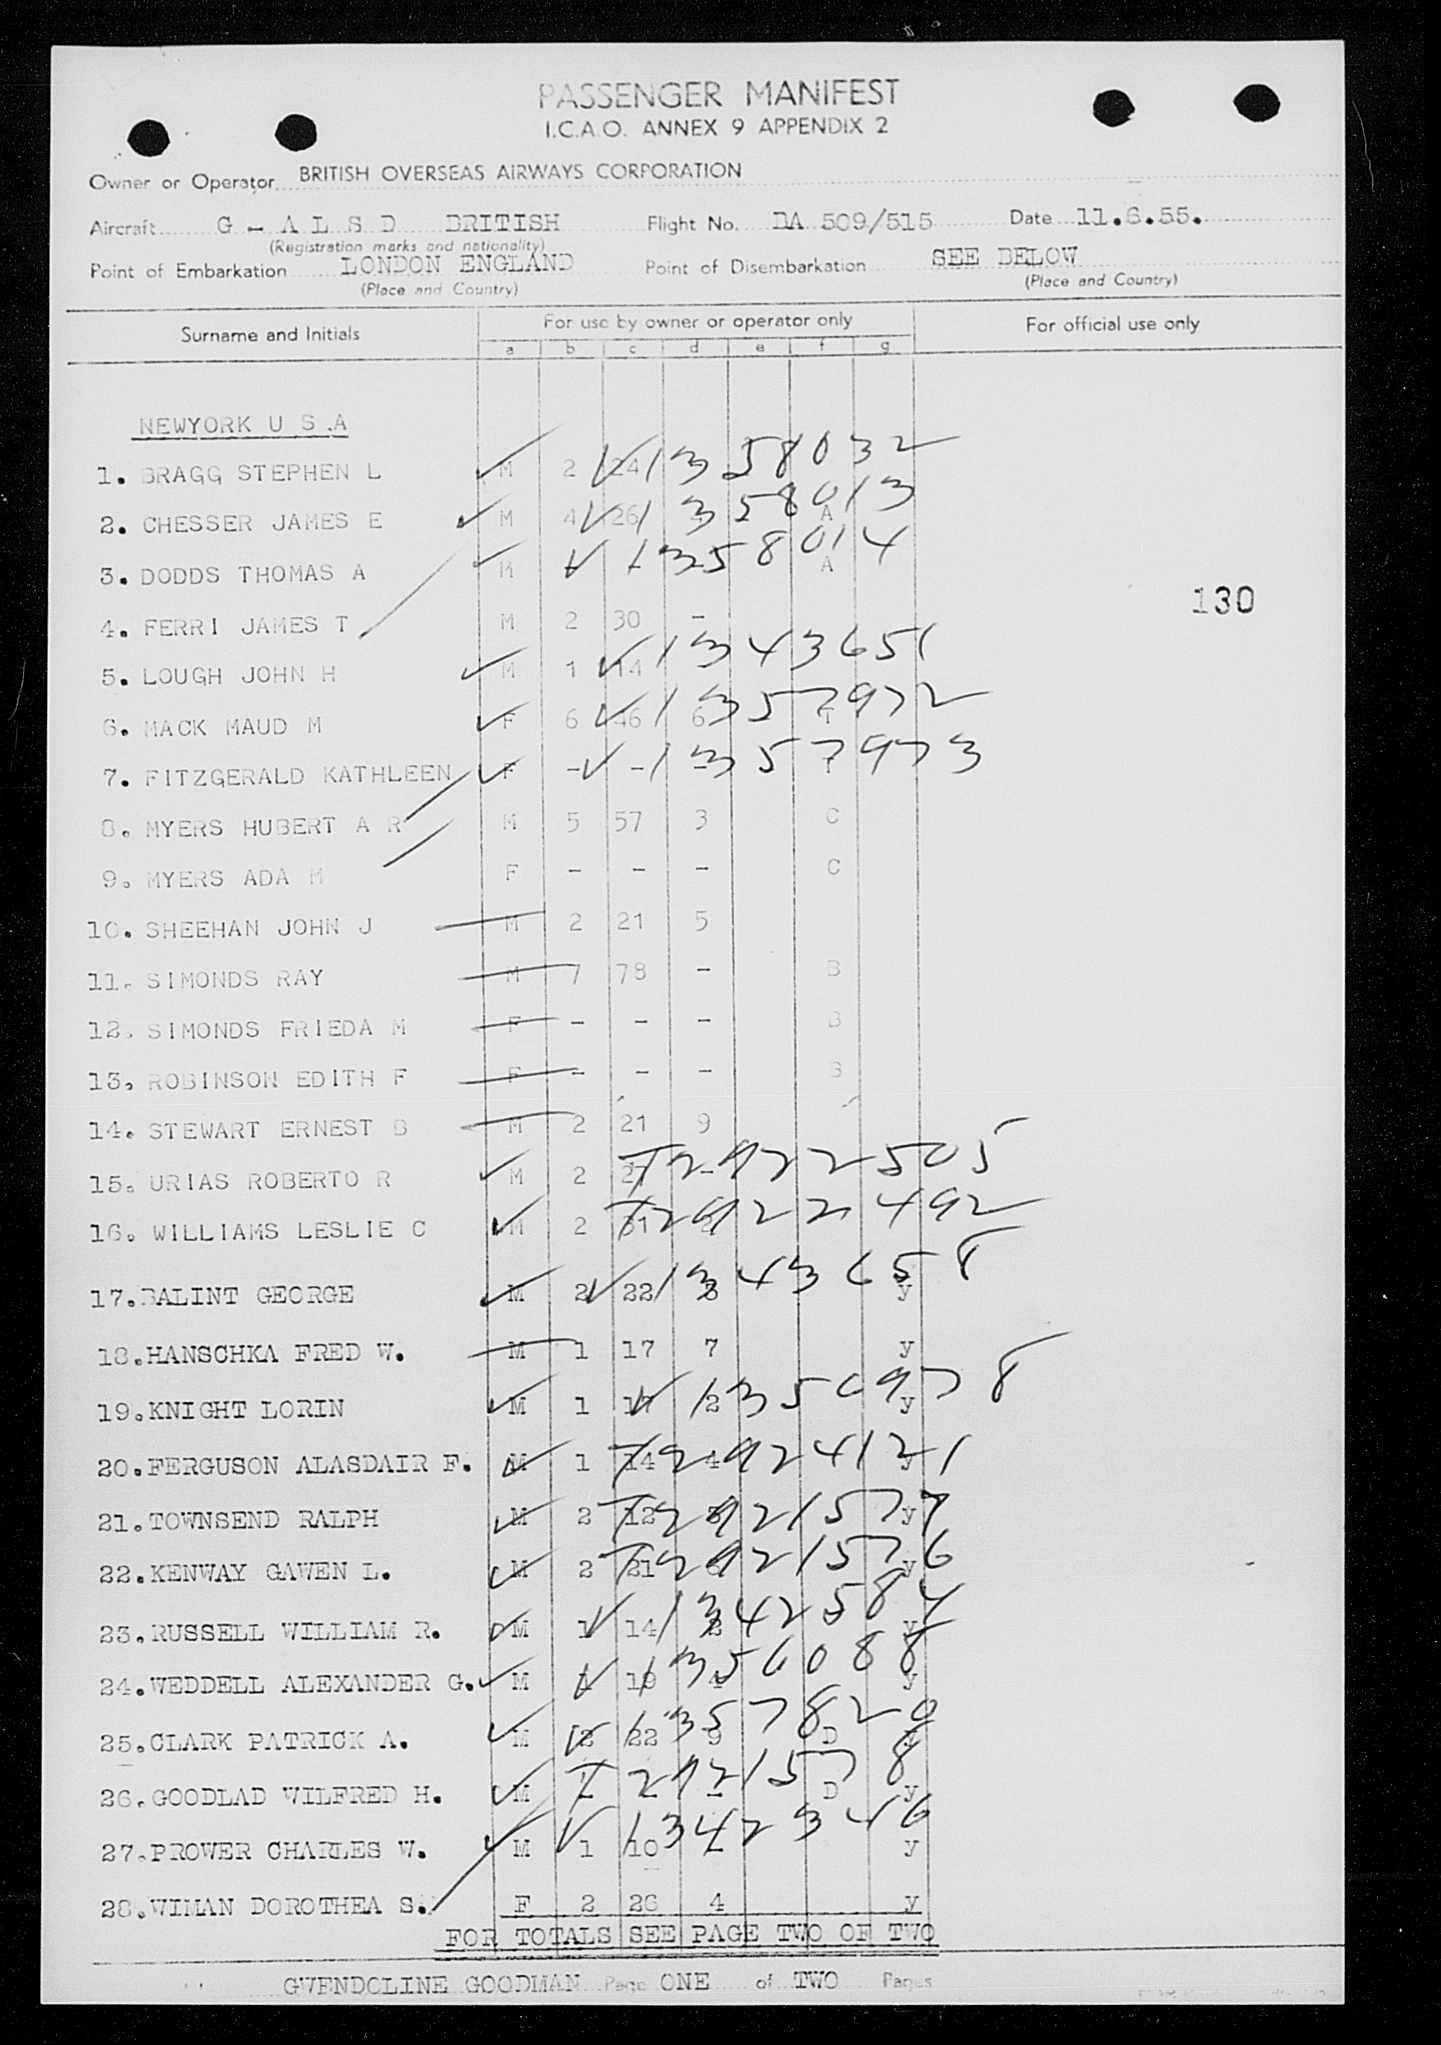 PASSENGER MANIFEST
I.C.A.O. ANNEX 9 APPENDIX 2
Owner or Operator BRITISH OVERSEAS AIRWAYS CORPORATION
Aircraft G - A L S D BRITISH Flight No. BA 509/515 Date 11.6.55.
(Registration marks and nationality)
Point of Embarkation LONDON ENGLAND Point of Disembarkation SEE BELOW
(Place and Country) (Place and Country)
Surname and Initials For use by owner or operator only For official use only
a b c d e f g
NEWYORK U S .A
1. BRAGG STEPHEN L M 2 24 1358032
2. CHESSER JAMES E M 4 26 A 1358013
3. DODDS THOMAS A M - - A 1358014
130
4. FERRI JAMES T M 2 30 -
5. LOUGH JOHN H M 1 14 1343651
6. MACK MAUD M F 6 46 6 T 1357972
7. FITZGERALD KATHLEEN F - - - T 1357973
8. MYERS HUBERT A R M 5 57 3 C
9. MYERS ADA M F - - - C
10. SHEEHAN JOHN J M 2 21 5
11. SIMONDS RAY M 7 78 - B
12. SIMONDS FRIEDA M F - - - B
13. ROBINSON EDITH F F - - - B
14. STEWART ERNEST B M 2 21 9
15. URIAS ROBERTO R M 2 21 - T2922505
16. WILLIAMS LESLIE C M 2 31 2 T2922492
17. BALINT GEORGE M 2 22 8 y 1343658
18. HANSCHKA FRED W. M 1 17 7 y
19. KNIGHT LORIN M 1 17 2 y 1350978
20. FERGUSON ALASDAIR F. M 1 14 4 y T2924121
21. TOWNSEND RALPH M 2 12 y T2921577
22. KENWAY GAWEN L. M 2 21 y T2921576
23. RUSSELL WILLIAM R. M 1 14 2 y 1342584
24. WEDDELL ALEXANDER G. M 1 19 4 y 1356088
25. CLARK PATRICK A. M 2 22 9 D y 1357820
26. GOODLAD WILFRED H. M - - - D y T2921578
27. PROWER CHARLES W. M 1 10 - y 1342346
28. WIMAN DOROTHEA S. F 2 26 4 y
FOR TOTALS SEE PAGE TWO OF TWO
GWENDOLINE GOODMAN Page ONE of TWO Pages